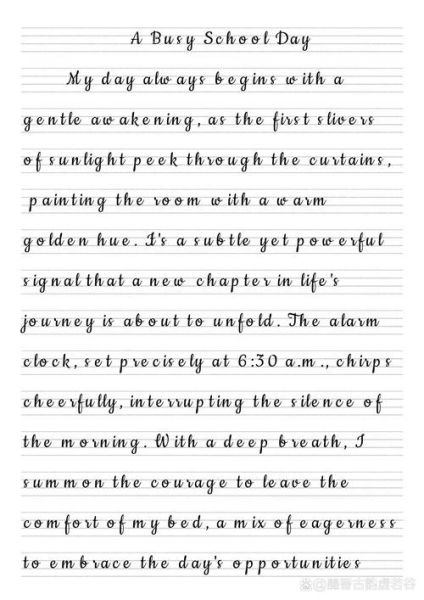 A Busy School Day
My day always begins with a
gentle awakening, as the first slivers
of sunlight peek through the curtains,
painting the room with a warm
golden hue. I's a subtle yet powerful
signal that a new chapter in life's
journey is about to unfold. The alarm
clock, set precisely at 6:30 a.m., chirps
cheerfully, interrupting the silence of
the morning. With a deep breath, I
summon the courage to leave the
comfort of my bed, a mix of eagerness
to embrace the day's opportunities